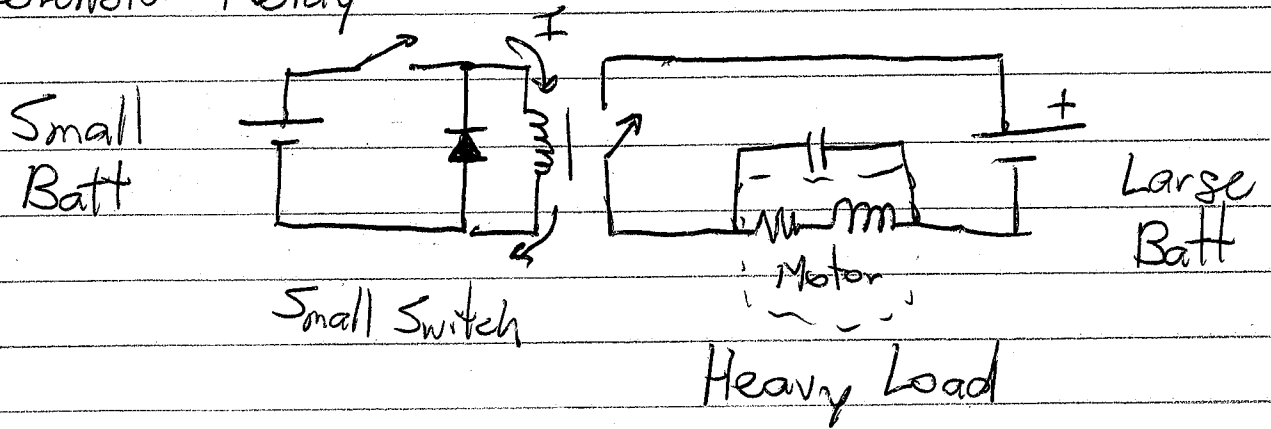 Relay
I
Small
Batt
+
Large
Batt
Motor
Small Switch
Heavy Load